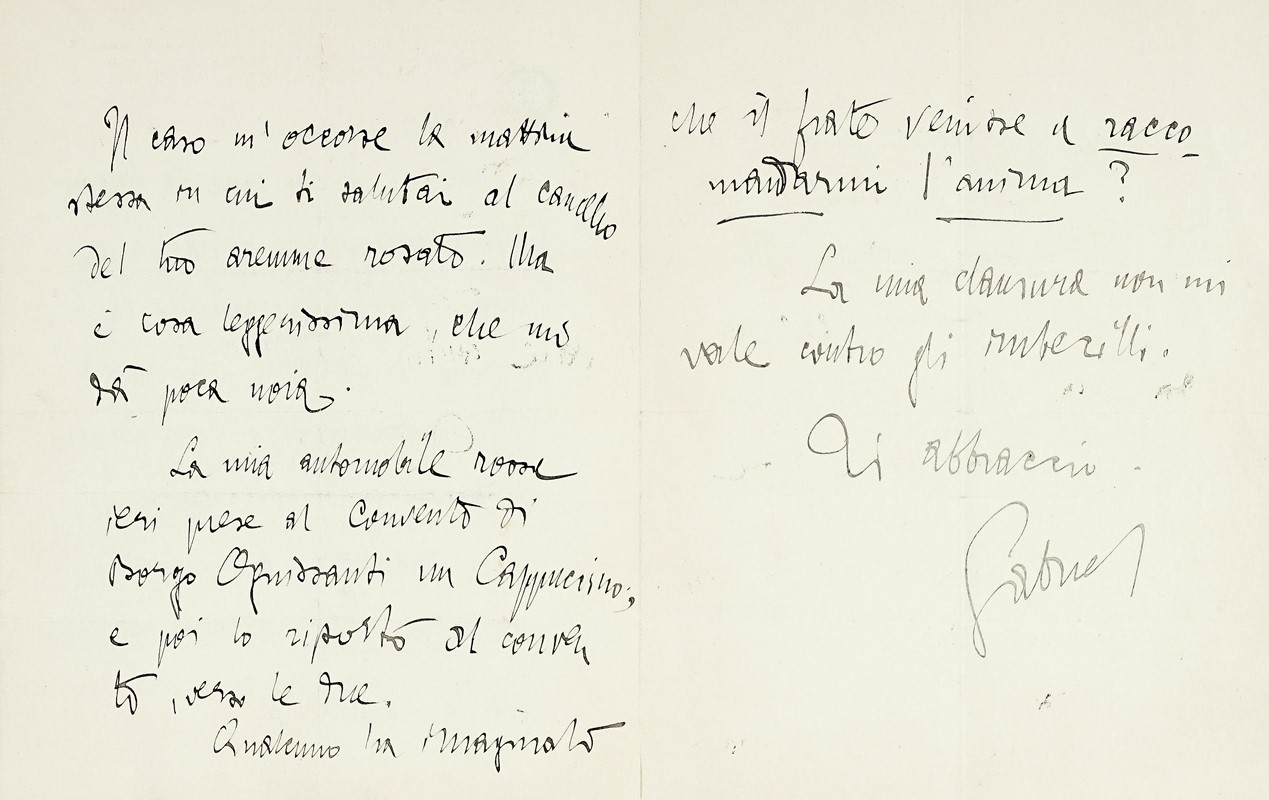 Il caso m'occorse la mattina
stessa in cui ti salutai al cancello
del tuo aremme rosato. Ma
è cosa leggerissima, che mi
dà poca noia.
La mia automobile rossa
ieri prese al Convento di
Borgo Ognissanti un Cappuccino;
e poi lo riportò al conven
to, verso le due.
Qualcuno ha imaginato
che il frate venisse a racco-
mandarmi l'anima?
La mia clausura non mi
vale contro gli imbecilli.
Ti abbraccio.
Gabriel